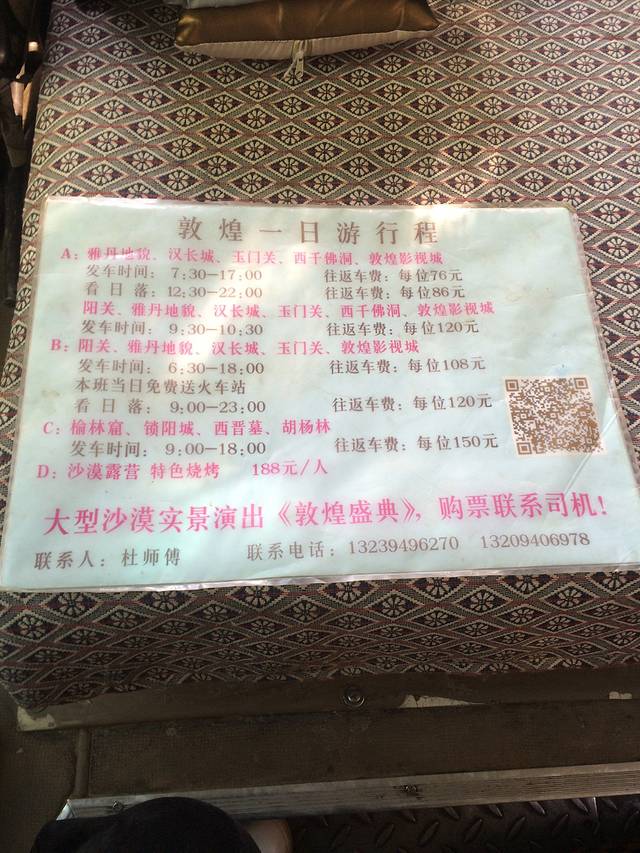 敦煌一日游行程
A：雅丹地貌、汉长城、玉门关、西千佛洞、敦煌影视城
发车时间：7:30—17:00 往返车费：每位76元
看日落：12:30—22:00 往返车费：每位86元
阳关、雅丹地貌、汉长城、玉门关、西千佛洞、敦煌影视城
发车时间：9:30—10:30 往返车费：每位120元
B：阳关、雅丹地貌、汉长城、玉门关、敦煌影视城
发车时间：6:30—18:00 往返车费：每位108元
本班当日免费送火车站
看日落：9:00—23:00 往返车费：每位120元
C：榆林窟、锁阳城、西晋墓、胡杨林
发车时间：9:00—18:00 往返车费：每位150元
D：沙漠露营 特色烧烤 188元/人
大型沙漠实景演出《敦煌盛典》，购票联系司机！
联系人：杜师傅 联系电话：13239496270 13209406978